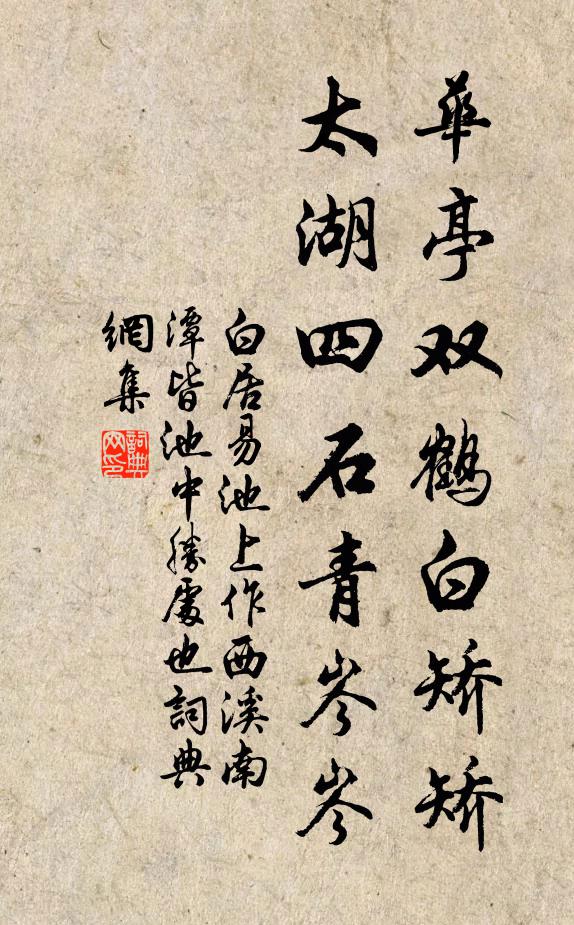 華亭双鹤白矫矫
太湖四石青岑岑
白居易池上作西溪南
潭皆池中勝處也詞典
網集
詞典
网印